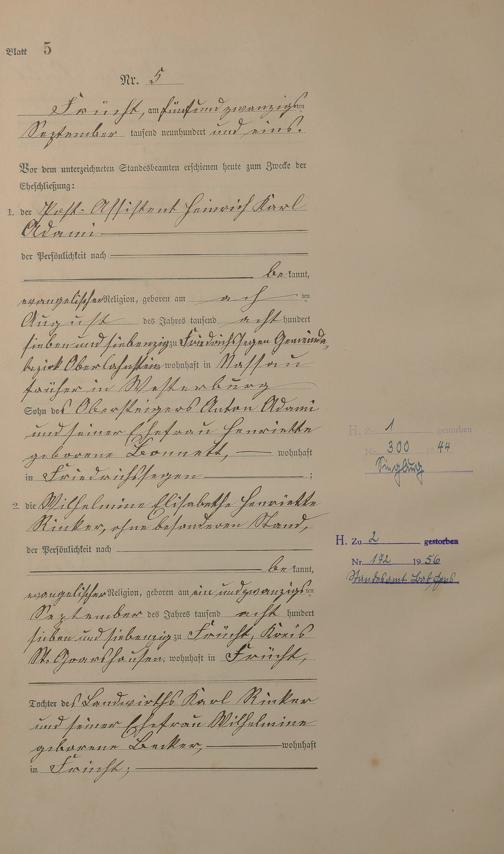 Blatt 5
Nr. 5
Frücht, am fünfundzwanzigsten
September tausend neunhundert und eins.
Vor dem unterzeichneten Standesbeamten erschienen heute zum Zwecke der
Eheschließung:
1. der Post-Assistent Heinrich Karl
Adami
der Persönlichkeit nach
bekannt,
evangelischer Religion, geboren am ten
August des Jahres tausend acht hundert
sieben und siebenzig zu Friedrichssegen Gemeinde-
bezirk Oberlahnstein wohnhaft in Nassau
früher in Westerburg
Sohn des Obersteigers Anton Adami
und seiner Ehefrau Henriette
geborene wohnhaft
in Friedrichssegen ;
2. die Wilhelmine Elisabethe Henriette
Rinker, ohne besonderen Stand,
der Persönlichkeit nach
bekannt,
evangelischer Religion, geboren am einundzwanzigsten
September des Jahres tausend acht hundert
sieben und siebenzig zu Frücht, Kreis
St. Goarshausen, wohnhaft in Frücht,
Tochter des Landwirths Karl Rinker
und seiner Ehefrau Wilhelmine
geborene Becker, wohnhaft
in Frücht;
H. Zu 1 gestorben
Nr. 300 1944
Siegburg
H. Zu 2 gestorben
Nr. 172 1956
Standesamt Bad Ems